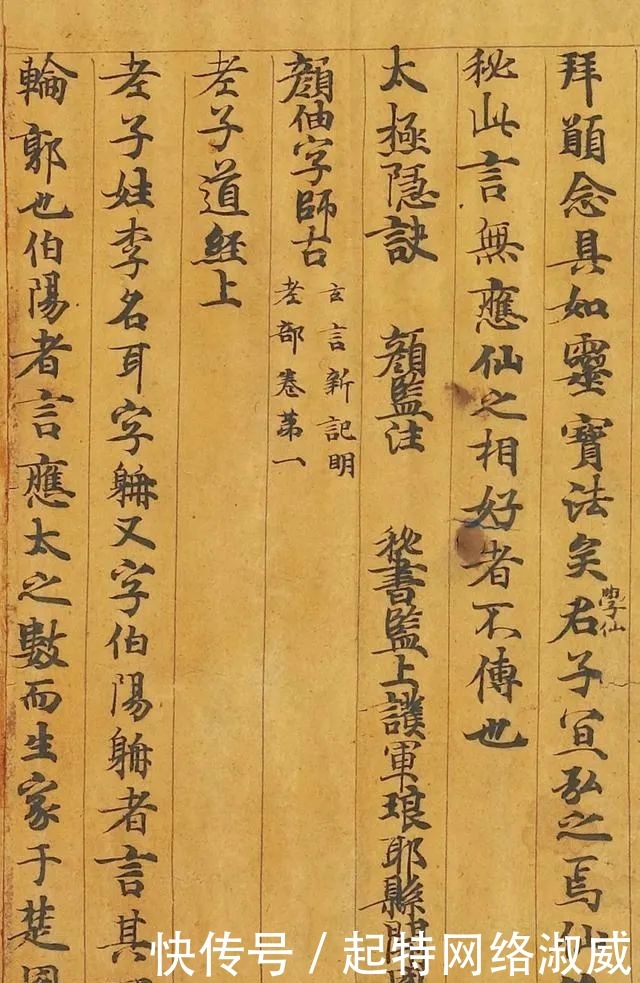 拜願念具如靈寶法矣君子宜弘之焉
學仙
秘此言無應仙之相好者不傳也
太極隱訣 顏監注 秘書監上護軍琅耶縣開國
顏伷字師古 玄言新記明
老部卷第一
老子道經上
老子姓李名耳字聃又字伯陽聃者言其
輪郭也伯陽者言應太之數而生家于楚國
快传号/起特网络淑威